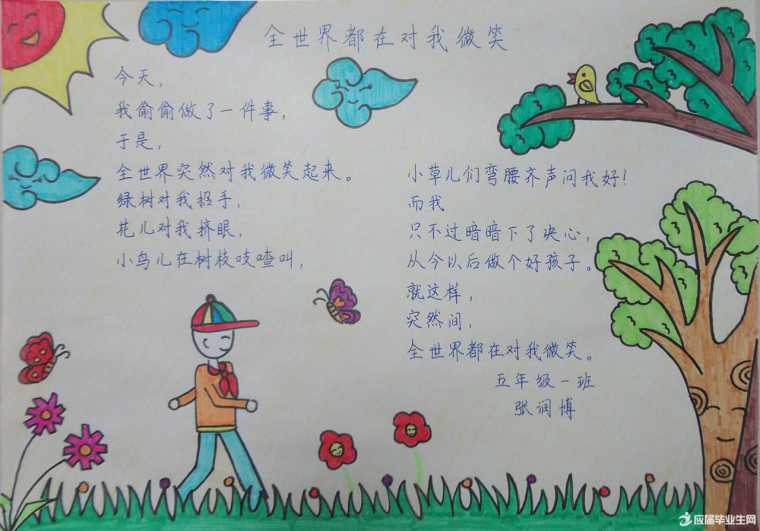 全世界都在对我微笑
今天，
我偷偷做了一件事，
于是，
全世界突然对我微笑起来。
绿树对我招手，
花儿对我挤眼，
小鸟儿在树枝吱喳叫，
小草儿们弯腰齐声问我好！
而我
只不过暗暗下了决心，
从今以后做个好孩子。
就这样，
突然间，
全世界都在对我微笑。
五年级一班
张润博
应届毕业生网